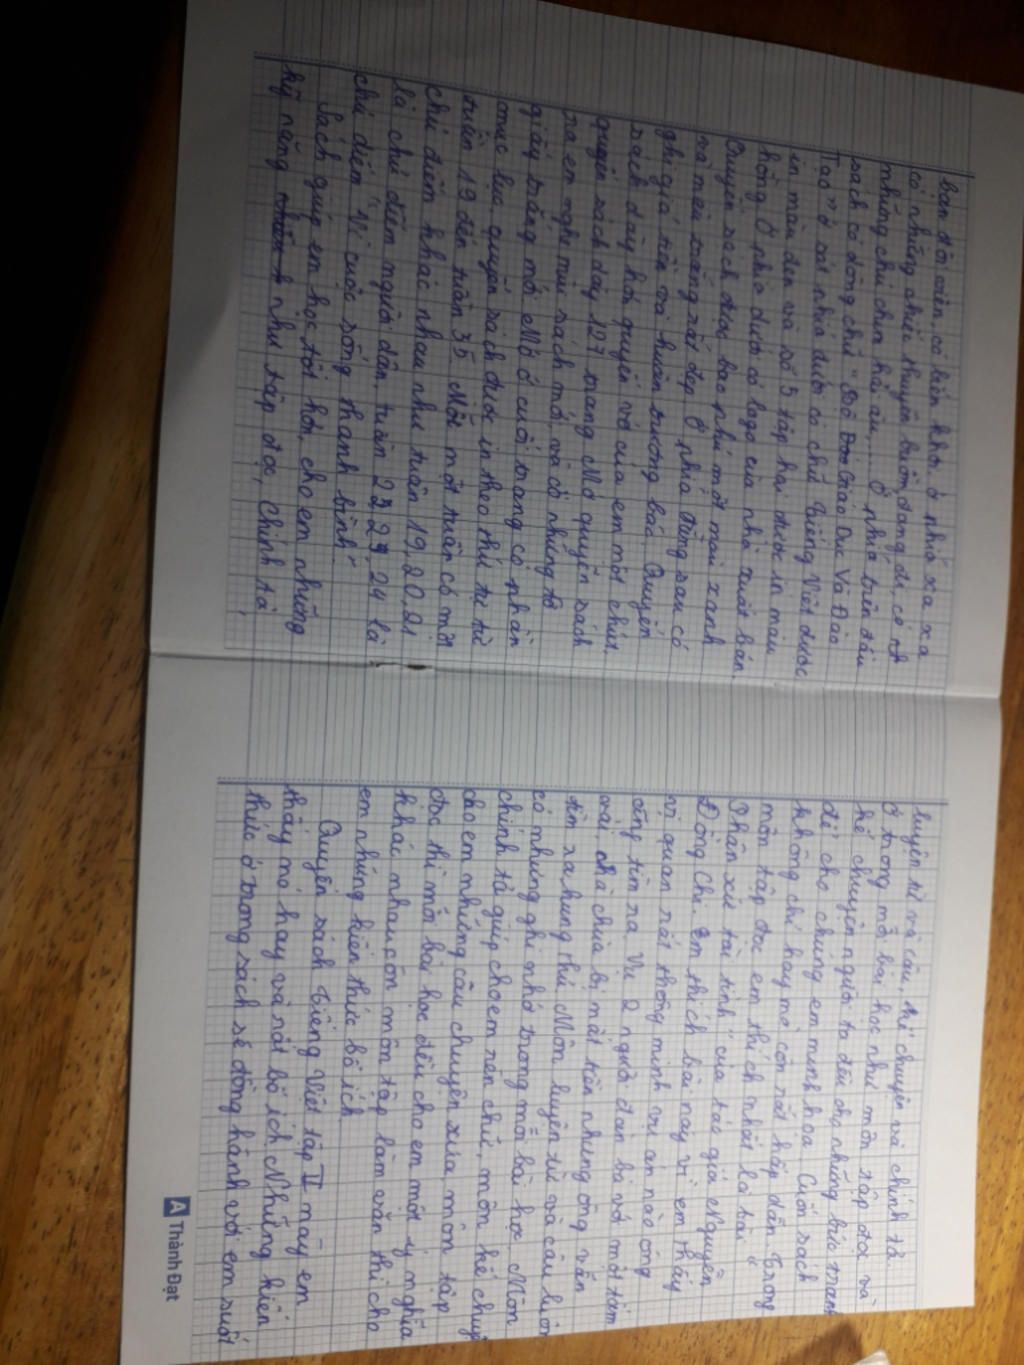 bạn đội viên, có biển khơi ở phía xa xa
có những chiếc thuyền buồm đang đi, có
những chú chim hải âu,...... Ở phía trên đầu
sách có dòng chữ "Bộ Giáo Dục Và Đào
Tạo" ở sát phía dưới có chữ Tiếng Việt được
in màu đen và số 5 tập hai được in màu
hồng. Ở phía dưới có logo của nhà xuất bản.
Quyển sách được bao phủ một màu xanh
và màu trắng rất đẹp. Ở phía đằng sau có
ghi giá tiền và huân chương bác. Quyển
sách dày hơn quyển vở của em một chút.
quyển sách dày 127 trang. Mở quyển sách
ra em ngửi mùi sách mới, và có những tờ
giấy trắng mới. Mở ở cuối trang có phần
mục lục, quyển sách được in theo thứ tự từ
tuần 19 đến tuần 35. Mỗi một tuần có một
chủ điểm khác nhau như tuần 19, 20, 21
là chủ điểm người dân, tuần 22, 23, 24 là
chủ điểm "Vì cuộc sống thanh bình".
Sách giúp em học tốt hơn, cho em những
kỹ năng như tập đọc, Chính tả,
luyện từ và câu, kể chuyện và chính tả.
Ở trong mỗi bài học như môn tập đọc và
kể chuyện người ta đều cho những bức tranh
để cho chúng em minh họa. Cuốn sách
không chỉ hay mà còn rất hấp dẫn. Trong
môn tập đọc em thích nhất là bài "
Phân xử tài tình" của tác giả Nguyễn
Đổng Chi. Em thích bài này vì em thấy
vị quan rất thông minh vụ án nào ông
cũng tìm ra. Vụ 2 người đàn bà với một tấm
vải, nhà chùa bị mất tiền nhưng ông vẫn
tìm ra hung thủ. Môn luyện từ và câu luôn
có những ghi nhớ trong mỗi bài học. Môn
chính tả giúp cho em rèn chữ, môn kể chuyện
cho em những câu chuyện xưa, môn tập
đọc thì mỗi bài học đều cho em một ý nghĩa
khác nhau còn môn tập làm văn thì cho
em những kiến thức bổ ích.
Quyển sách Tiếng Việt tập II này em
thấy nó hay và rất bổ ích. Những kiến
thức ở trong sách sẽ đồng hành với em suốt
A Thành Đạt